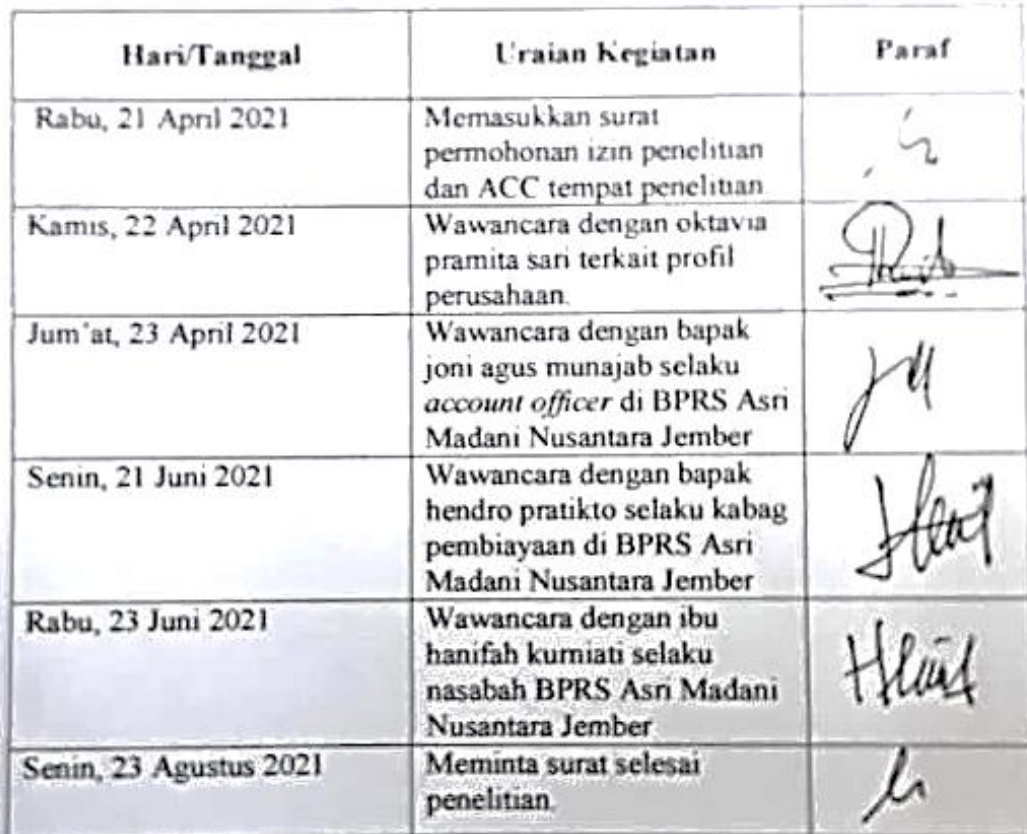 Hari/Tanggal
Uraian Kegiatan
Paraf
Rabu, 21 April 2021
Memasukkan surat
permohonan izin penelitian
dan ACC tempat penelitian
Kamis, 22 April 2021
Wawancara dengan oktavia
pramita sari terkait profil
perusahaan.
Jum'at, 23 April 2021
Wawancara dengan bapak
joni agus munajab selaku
account officer di BPRS Asri
Madani Nusantara Jember
Senin, 21 Juni 2021
Wawancara dengan bapak
hendro pratikto selaku kabag
pembiayaan di BPRS Asri
Madani Nusantara Jember
Rabu, 23 Juni 2021
Wawancara dengan ibu
hanifah kurniati selaku
nasabah BPRS Asri Madani
Nusantara Jember
Senin, 23 Agustus 2021
Meminta surat selesai
penelitian.